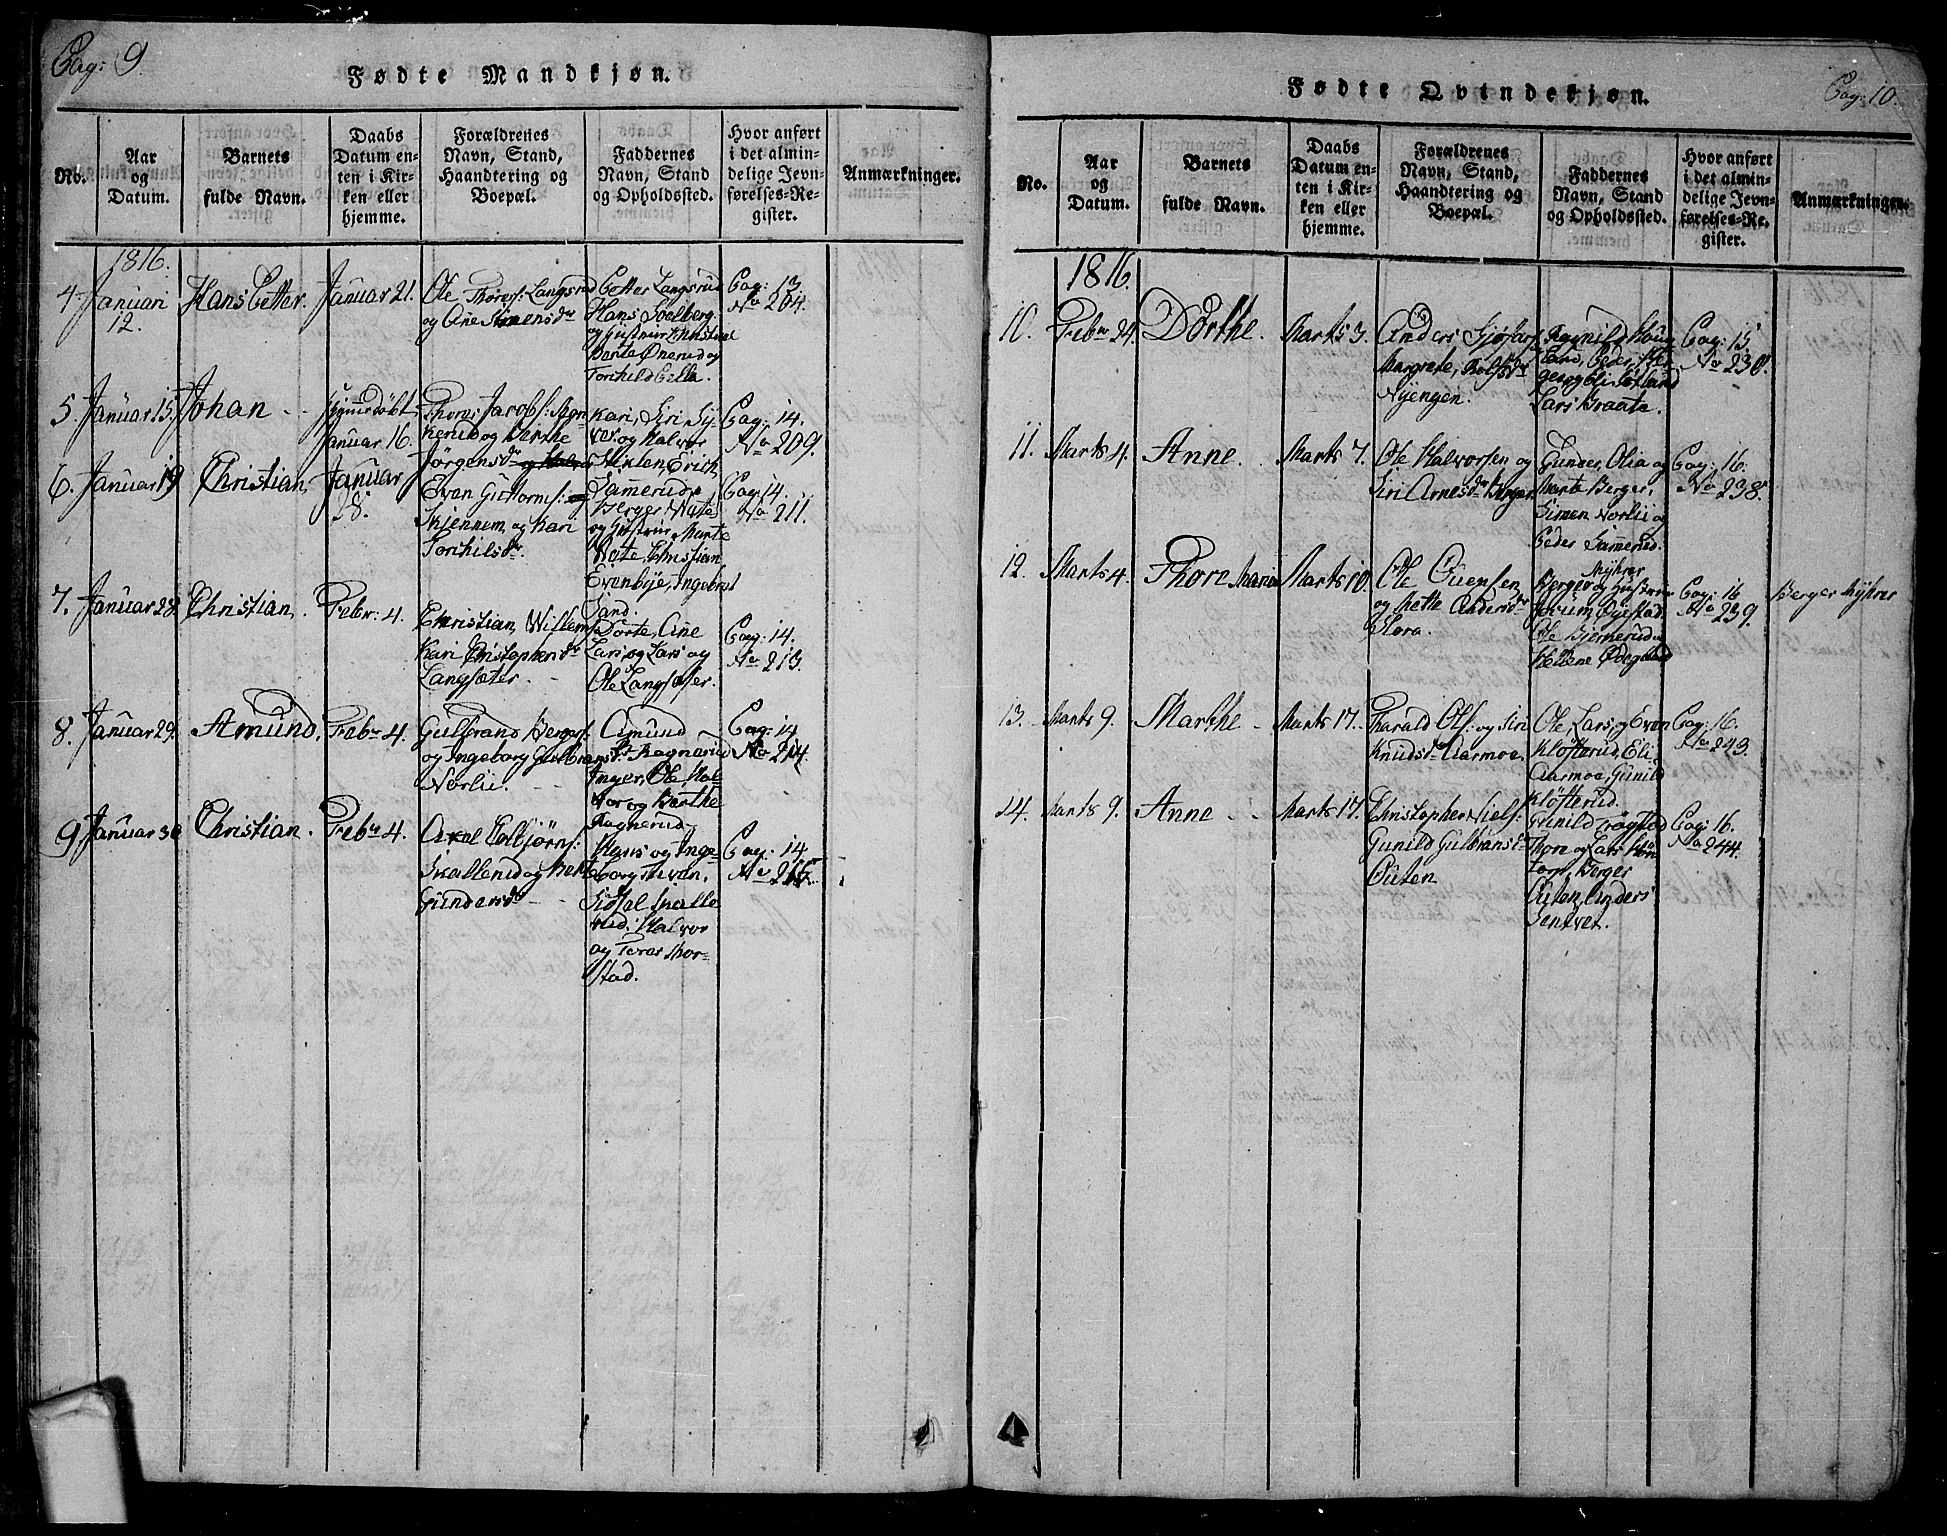 Pag: 9.
Fødte Mandkjøn.
No.
Aar
og
Datum.
Barnets
fulde Navn.
Daabs
Datum en-
ten i Kir-
ken eller
hjemme.
Forældrenes
Navn, Stand,
Haandtering og
Boepæl.
Faddernes
Navn, Stand
og Opholdssted.
Hvor anført
i det almin-
delige Jevn-
førelses-Re-
gister.
Anmærkninger.
1816.
4. Januari
12.
Hans Petter.
Januar 21.
Ole Thores: Langsrud
og Ane Simensdr
Petter Langsrud
Hans Soelberg
Bente Ønerud og
Torchild Pella.
Pag: 13.
No 204.
5. Januar 15.
Johan
Januar 16.
Thores Jacobs:
og Birthe
Jørgensdr
Kari, Siri
og Halvor
Pag: 14.
No 209.
6. Januar 19
Christian,
Januar
28.
Even Guttorms:
Skjennem og Kari
Torchilsdr
Erich
Samerud,
Berger Note
Marte
Note, Christian
Evenbye, Ingebret
Sand.
Pag: 14.
No 211.
7. Januar 28.
Christian,
Febr: 4.
Christian Willems
Kari Christophersdr
Langsæter
Dorte, Ane
Lars og Lars og
Ole Langsæter.
Pag: 14.
No 213.
8. Januar 29.
Amund,
Febr 4.
Gulbrand Bergers:
og Ingeborg Gulbransdr
Norlii.
Amund
Ragnerud
Inger, Ole Hal
vor og Berthe
Ragnerud
Pag: 14
No 214.
9. Januar 30
Christian.
Febr 4.
Axel Eelbjørns:
Skallerud og
Gundersdr
Hans og Inge-
borg
Sidsel Skalle
rud, Halvor
og Tores Thor-
stad.
Pag: 14.
No 215.
Pag: 10.
Fødte Qvindekjøn.
No.
Aar
og
Datum.
Barnets
fulde Navn.
Daabs
Datum en-
ten i Kir-
ken eller
hjemme.
Forældrenes
Navn, Stand,
Haandtering og
Boepæl.
Faddernes
Navn, Stand
og Opholdssted.
Hvor anført
i det almin-
delige Jevn-
førelses-Re-
gister.
Anmærkninger.
1816.
10. Febr 24.
Dorthe.
Marts 3.
Anders
Margrete, Rolfsdr
Nyengen.
Ragnild Houg
Lars Braate.
Pag: 15
No 230.
11. Marts 4.
Anne.
Marts 7.
Ole Halvorsen og
Siri Arnesdr Berger
Gunder, Olia og
Marte Berger,
Simen Norlii og
Peder Samerud.
Pag: 16.
No 238.
12. Marts 4.
Thore Maria
Marts 10.
Ole Evensen
og Mette Andersdr
Flora.
Myhrer
Ole Bjernerud
Hellene Ødegaard
Pag: 16
No 239.
Berger Myhrer
13. Marts 9.
Marthe
Marts 17.
Harald Ols: og Siri
Knudsdr Aarmoe.
Ole, Lars og Even
Kløfterud, Eli
Aarmoe, Gunild
Kløfterud.
Pag: 16.
No 243.
14. Marts 9.
Anne
Marts 17.
Christopher Niels:
Gunild Gulbransdr
Outen
Gunild
Thore og Lars
Berger
Outen, Anders
Sentvet.
Pag: 16.
No 244.